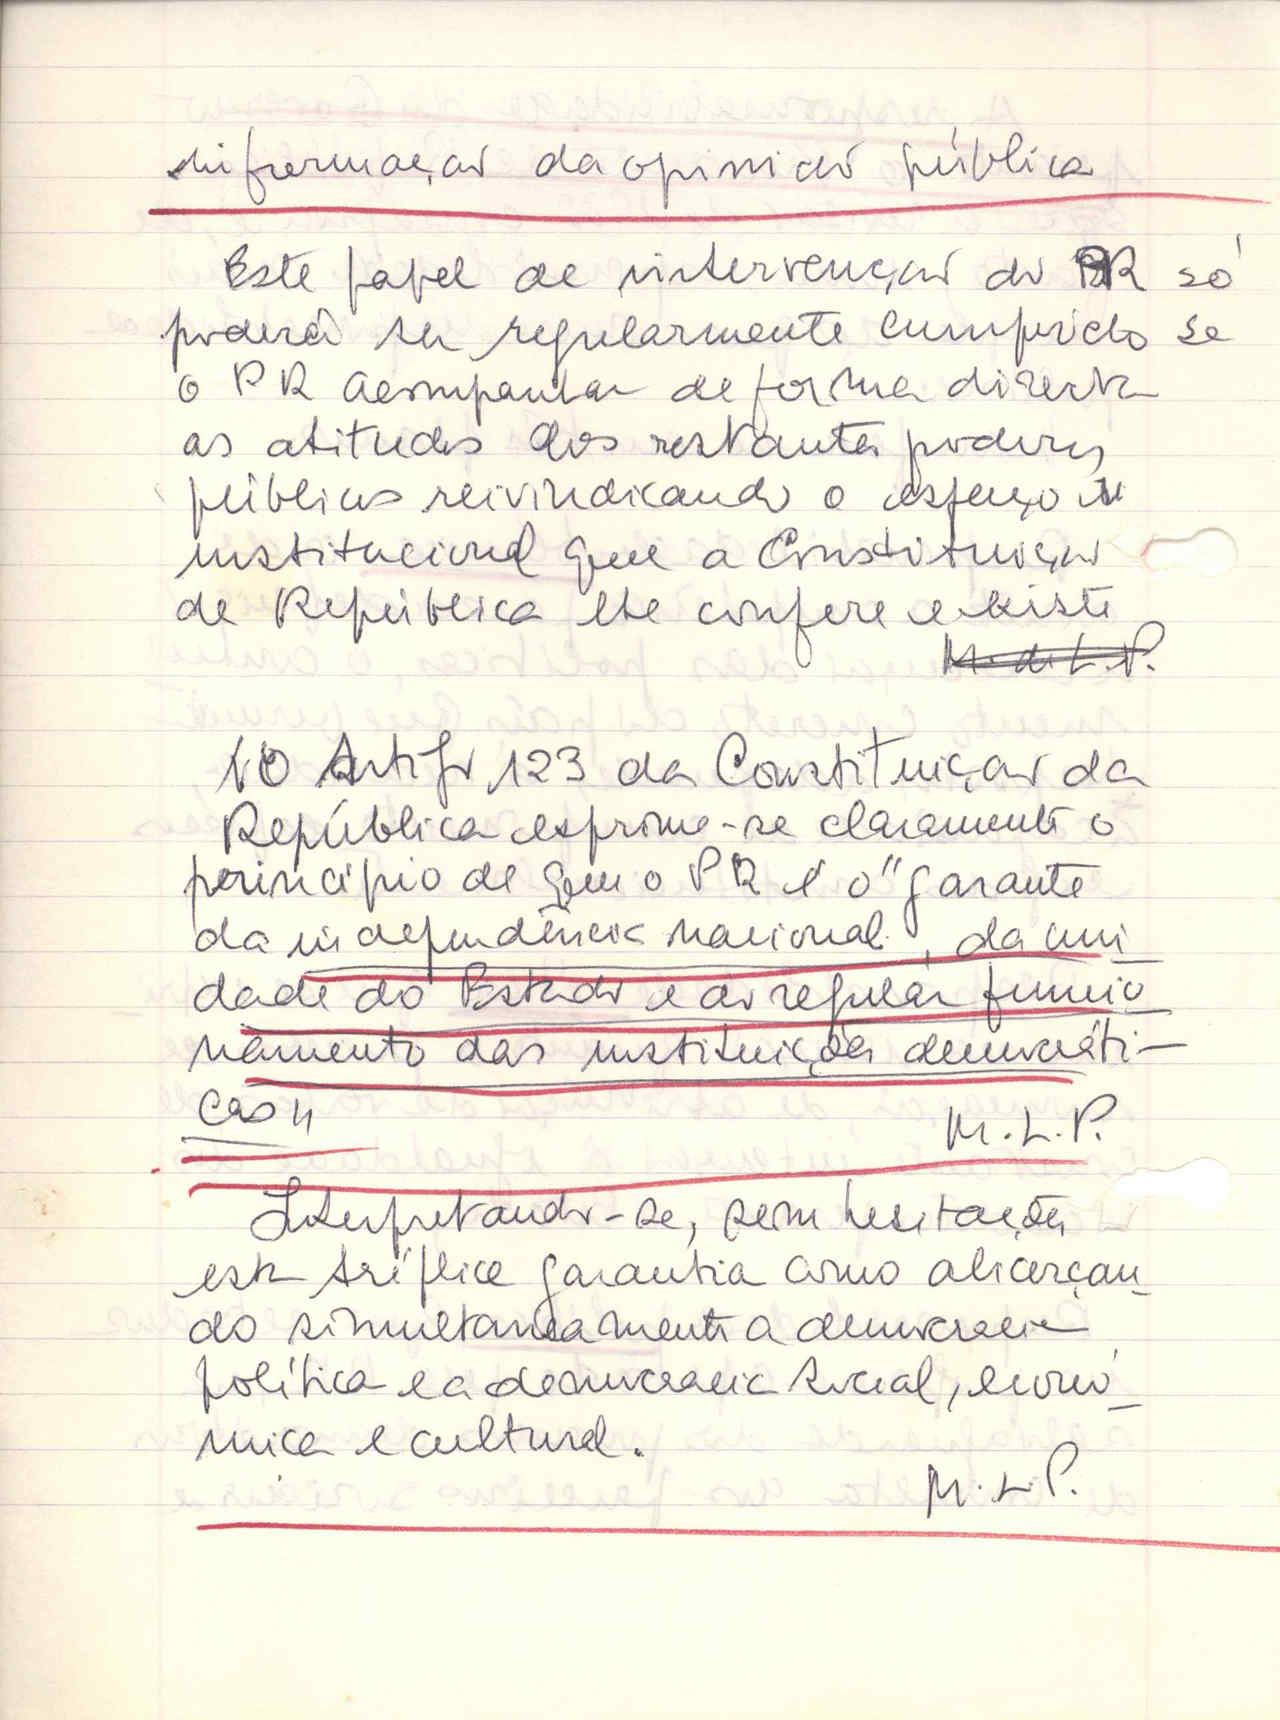 informação da opinião pública
Este papel de intervenção do PR só
poderá ser regularmente cumprido se
o PR acompanhar de forma directa
as atitudes dos restantes poderes
públicos reivindicando o espaço
institucional que a Constituição
de República lhe confere existe
M. de L. P.
No Artigo 123 da Constituição da
República exprime-se claramente o
princípio de que o PR é o "garante
da independência nacional, da uni
dade do Estado e do regular funcio
namento das instituições democráti-
cas"
M. L. P.
Interpretando-se, sem hesitações
esta tríplice garantia como alicerçan_
do simultaneamente a democracia
política e a democracia social, econó_
mica e cultural.
M. L. P.